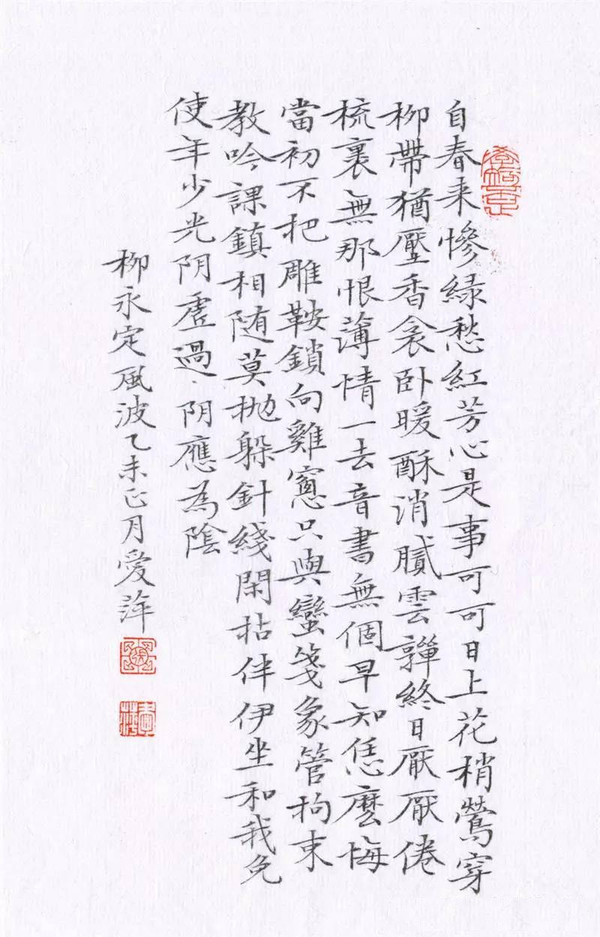 自春来慘綠愁紅芳心是事可可日上花梢鶯穿
柳帶猶壓香衾卧暖酥消膩雲軃終日厭厭倦
梳裹無那恨薄情一去音書無個早知恁麼悔
當初不把雕鞍鎖向雞窻只與蠻箋象管拘束
教吟課鎮相随莫抛躲針綫閑拈伴伊坐和我免
使年少光阴虚過、阴應為陰
柳永定風波乙未正月愛萍